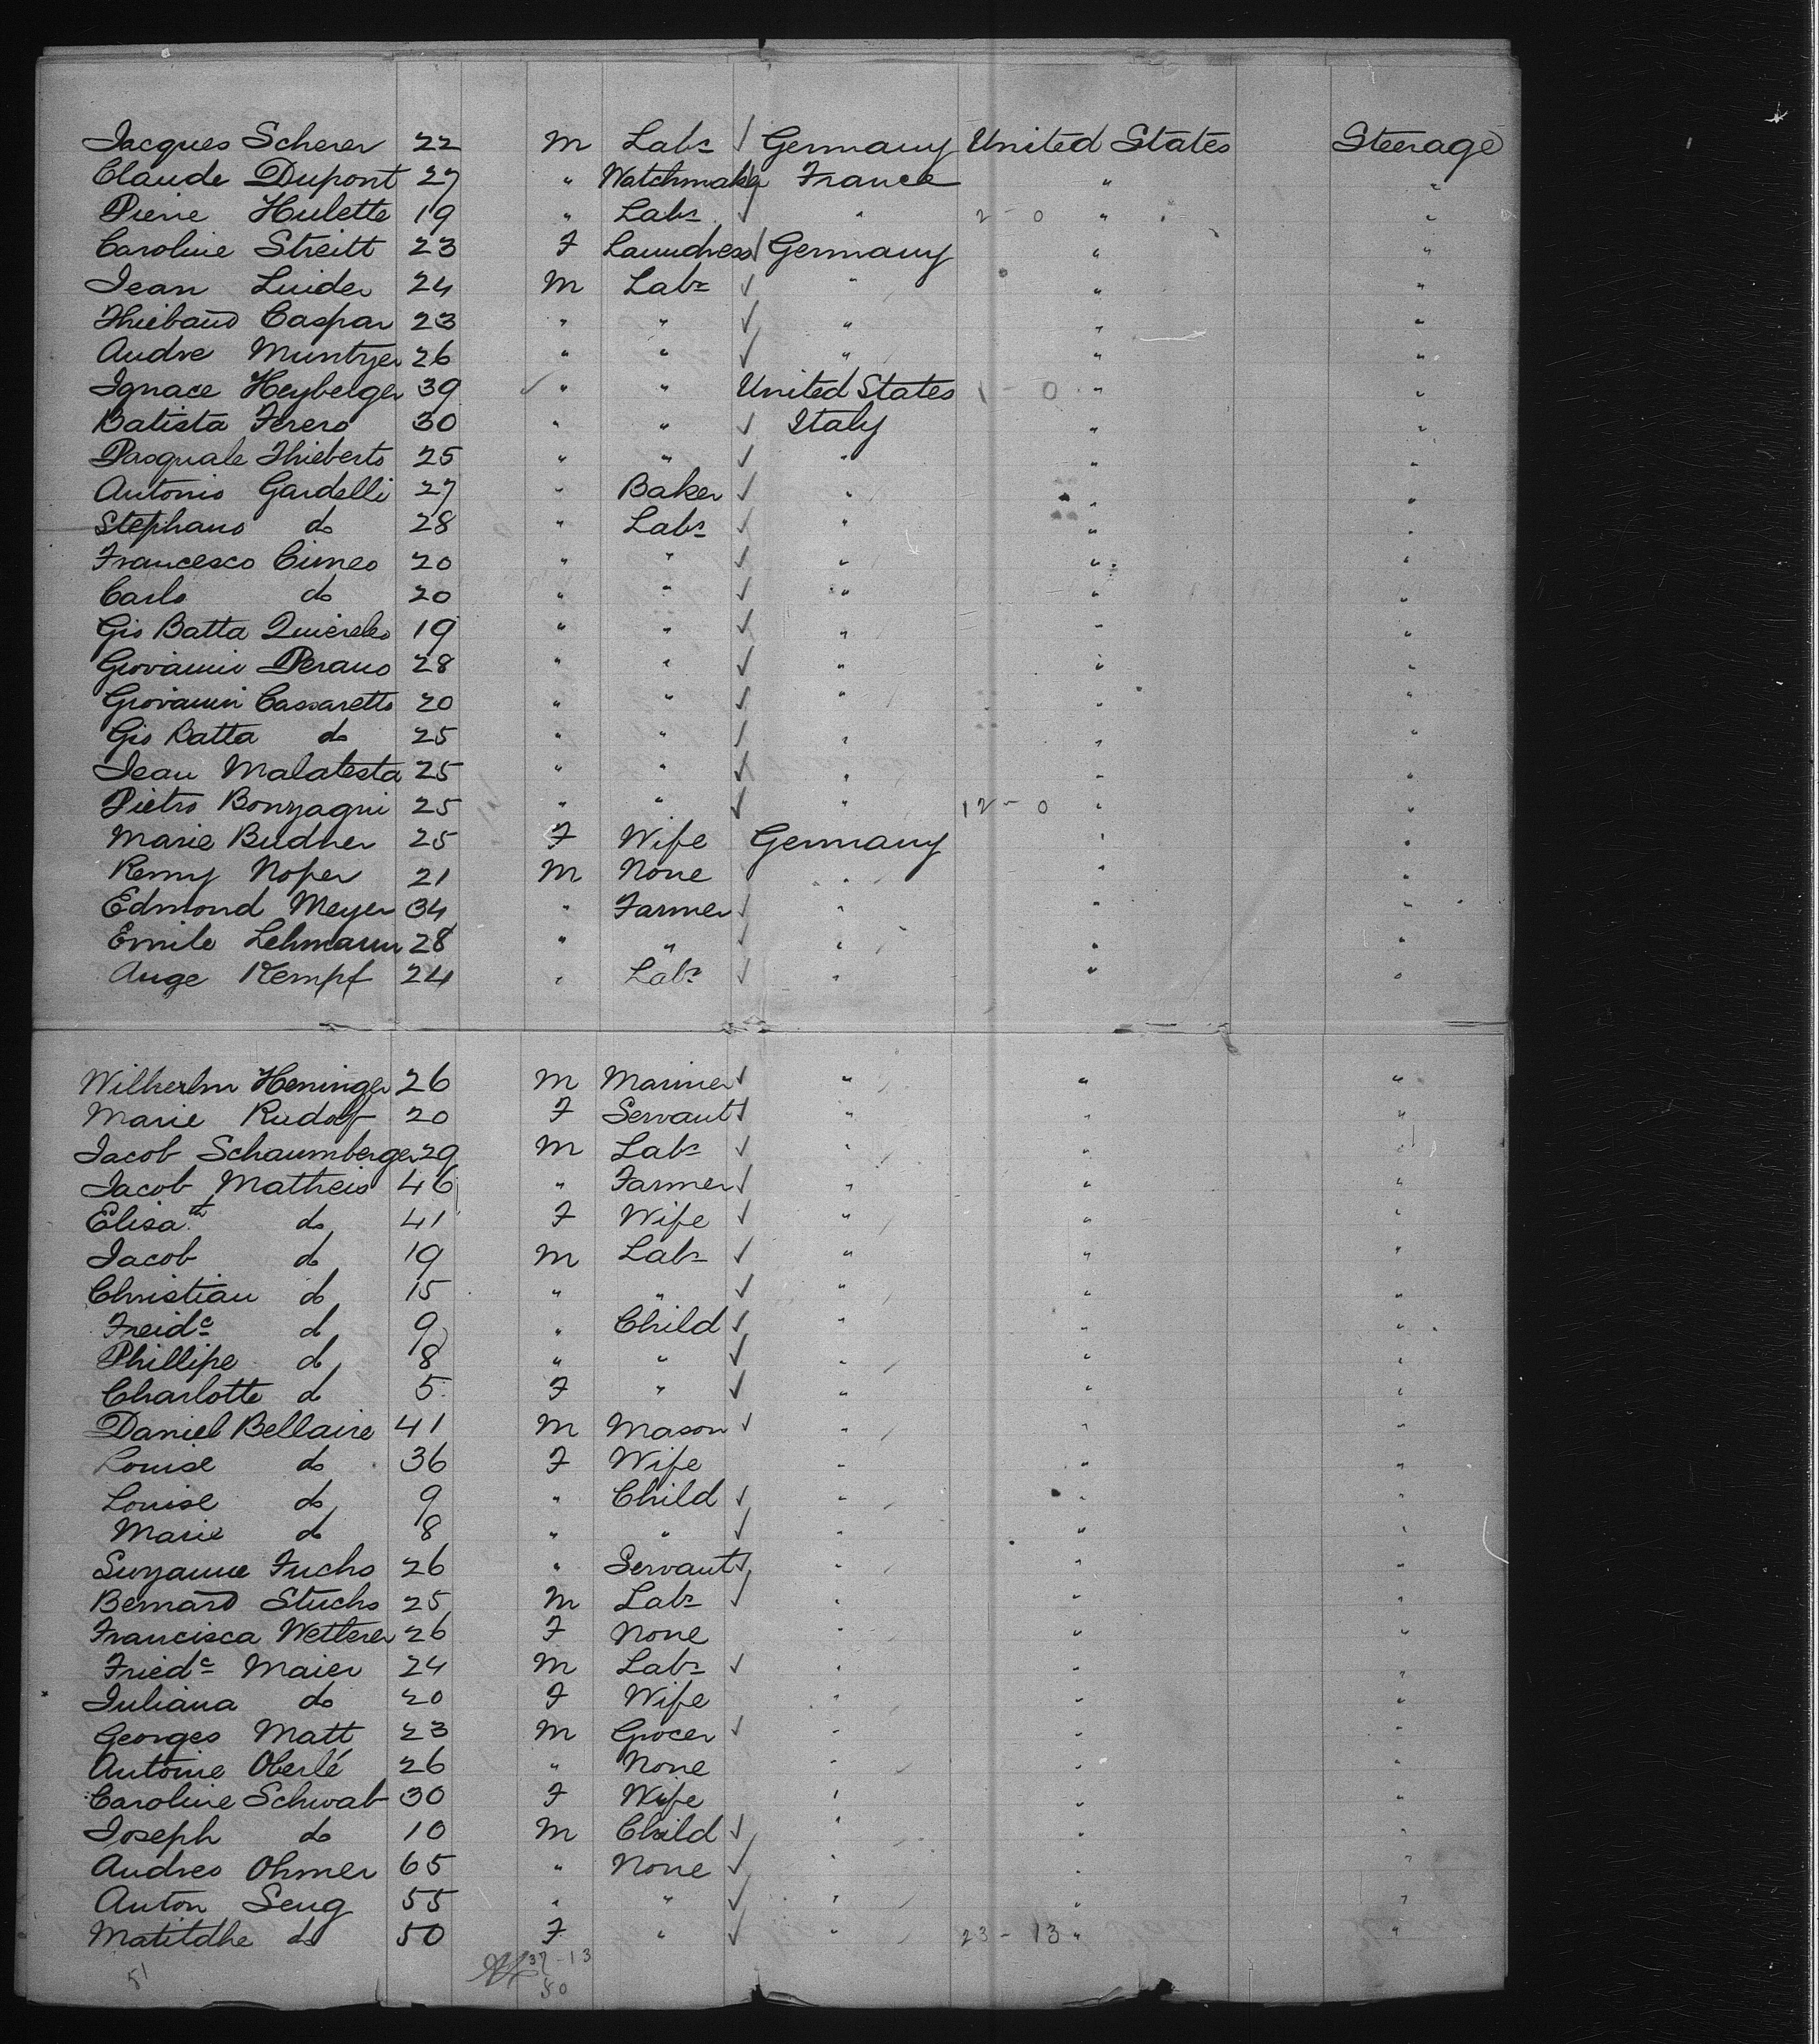 Jacques Scherer 22 M Labr ✓ Germany United States Steerage
Claude Dupont 27 " Watchmaker France " "
Pierre Hulette 19 " Labr ✓ " 2 - 0 " "
Caroline Streitt 23 F Laundress ✓ Germany " "
Jean Luider 24 M Labr ✓ " " "
Thiebaud Caspar 23 " " ✓ " " "
Andre Muntzer 26 " " ✓ " " "
Ignace Heyberger 39 ✓ " " United States 1 - 0 " "
Batista Ferero 30 " " ✓ Italy " "
Pasquale Thieberto 25 " " ✓ " " "
Antonio Gardelli 27 " Baker ✓ " " "
Stephano do 28 " Labr ✓ " " "
Francesco Cuneo 20 " " ✓ " " "
Carlo do 20 " " ✓ " " "
Gio Batta 19 " " ✓ " " "
Giovanni Perano 28 " " ✓ " " "
Giovanni Cassaretto 20 " " ✓ " " "
Gio Batta do 25 " " ✓ " " "
Jean Malatesta 25 " " ✓ " " "
Pietro Bonzagni 25 " " ✓ " 12 - 0 " "
Marie Budner 25 F Wife Germany " "
Remy Noper 21 M None " " "
Edmond Meyer 34 " Farmer ✓ " " "
Emile Lehmann 28 " " ✓ " " "
Auge Kempf 24 " Labr ✓ " " "
Wilherlm Heninger 26 M Mariner ✓ " " "
Marie Rudolf 20 F Servant ✓ " " "
Jacob Schaumberger 29 M Labr ✓ " " "
Jacob Matheis 46 " Farmer ✓ " " "
Elisath do 41 F Wife ✓ " " "
Jacob do 19 M Labr ✓ " " "
Christian do 15 " " ✓ " " "
Freidc do 9 " Child ✓ " " "
Phillipe do 8 " " ✓ " " "
Charlotte do 5 F " ✓ " " "
Daniel Bellaire 41 M Mason ✓ " " "
Louise do 36 F Wife " " "
Louise do 9 " Child ✓ " " "
Marie do 8 " " ✓ " " "
Suzanne Fuchs 26 " Servant ✓ " " "
Bernard Stuchs 25 M Labr ✓ " " "
Francisca Wetterer 26 F None " " "
Friedc Maier 24 M Labr ✓ " " "
Juliana do 20 F Wife " " "
Georges Matt 23 M Grocer ✓ " " "
Antoine Oberlé 26 " None " " "
Caroline Schwab 30 F Wife " " "
Joseph do 10 M Child ✓ " " "
Andreo Ohmer 65 " None ✓ " " "
Anton Seug 55 " " ✓ " " "
Matitdhe do 50 F " ✓ " 23 - 13 " "
51 37 - 13
50